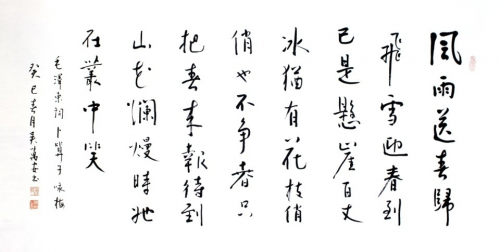 風雨送春歸
飛雪迎春到
已是懸崖百丈
冰猶有花枝俏
俏也不争春只
把春来報待到
山花爛熳時她
在叢中笑
毛澤東詞卜算子咏梅
癸巳春月